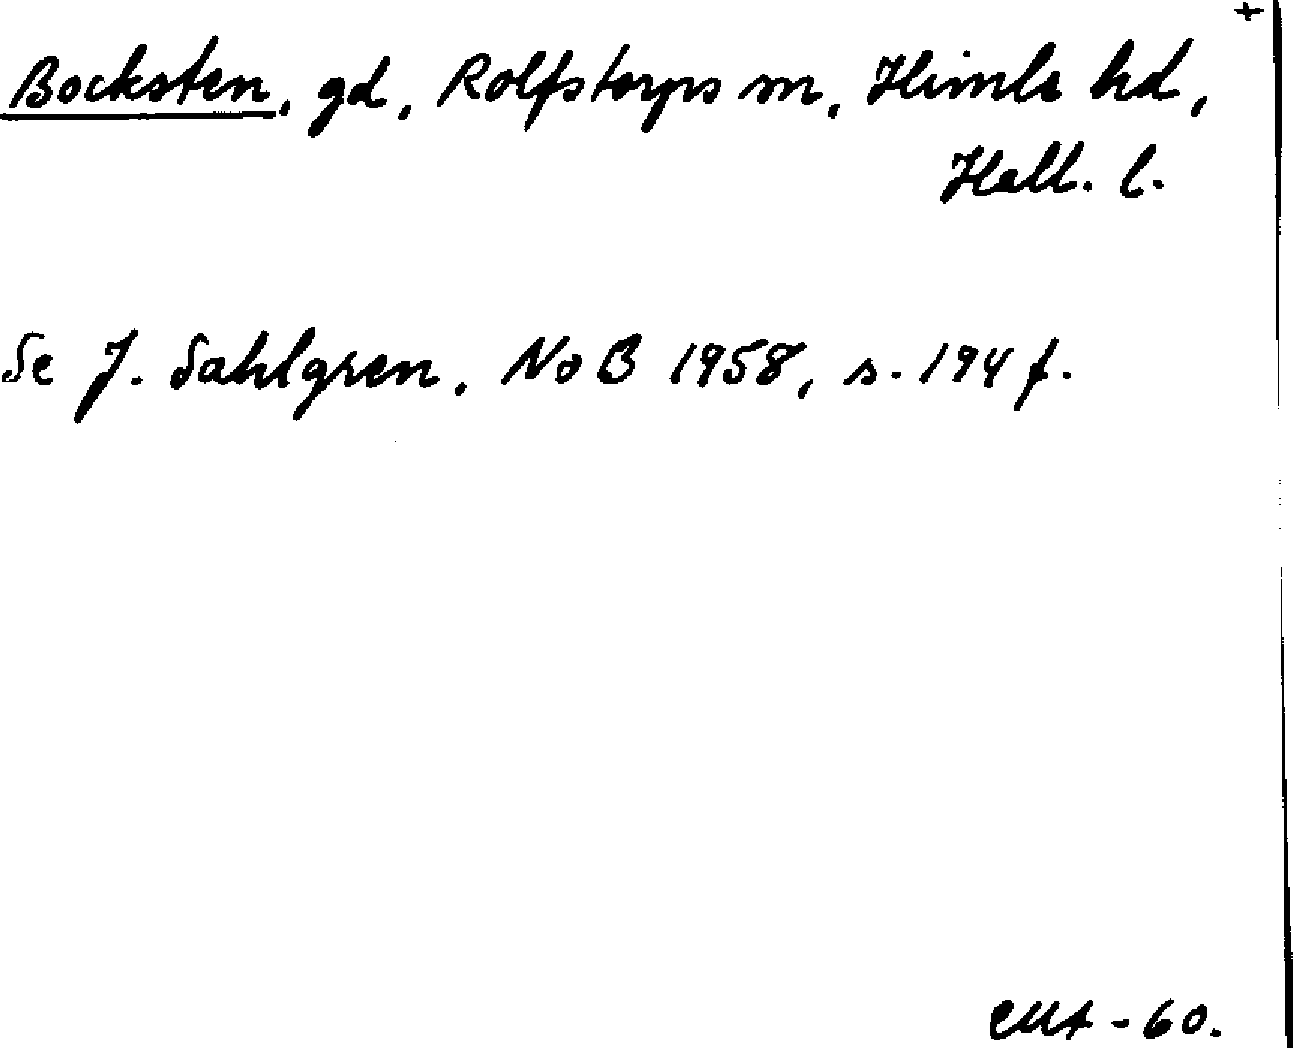 +
Bocksten, gd, Rolfstorps sn, Himle hd,
Hall. l.
Se J. Sahlgren, NoB 1958, s. 194 f.
-60.